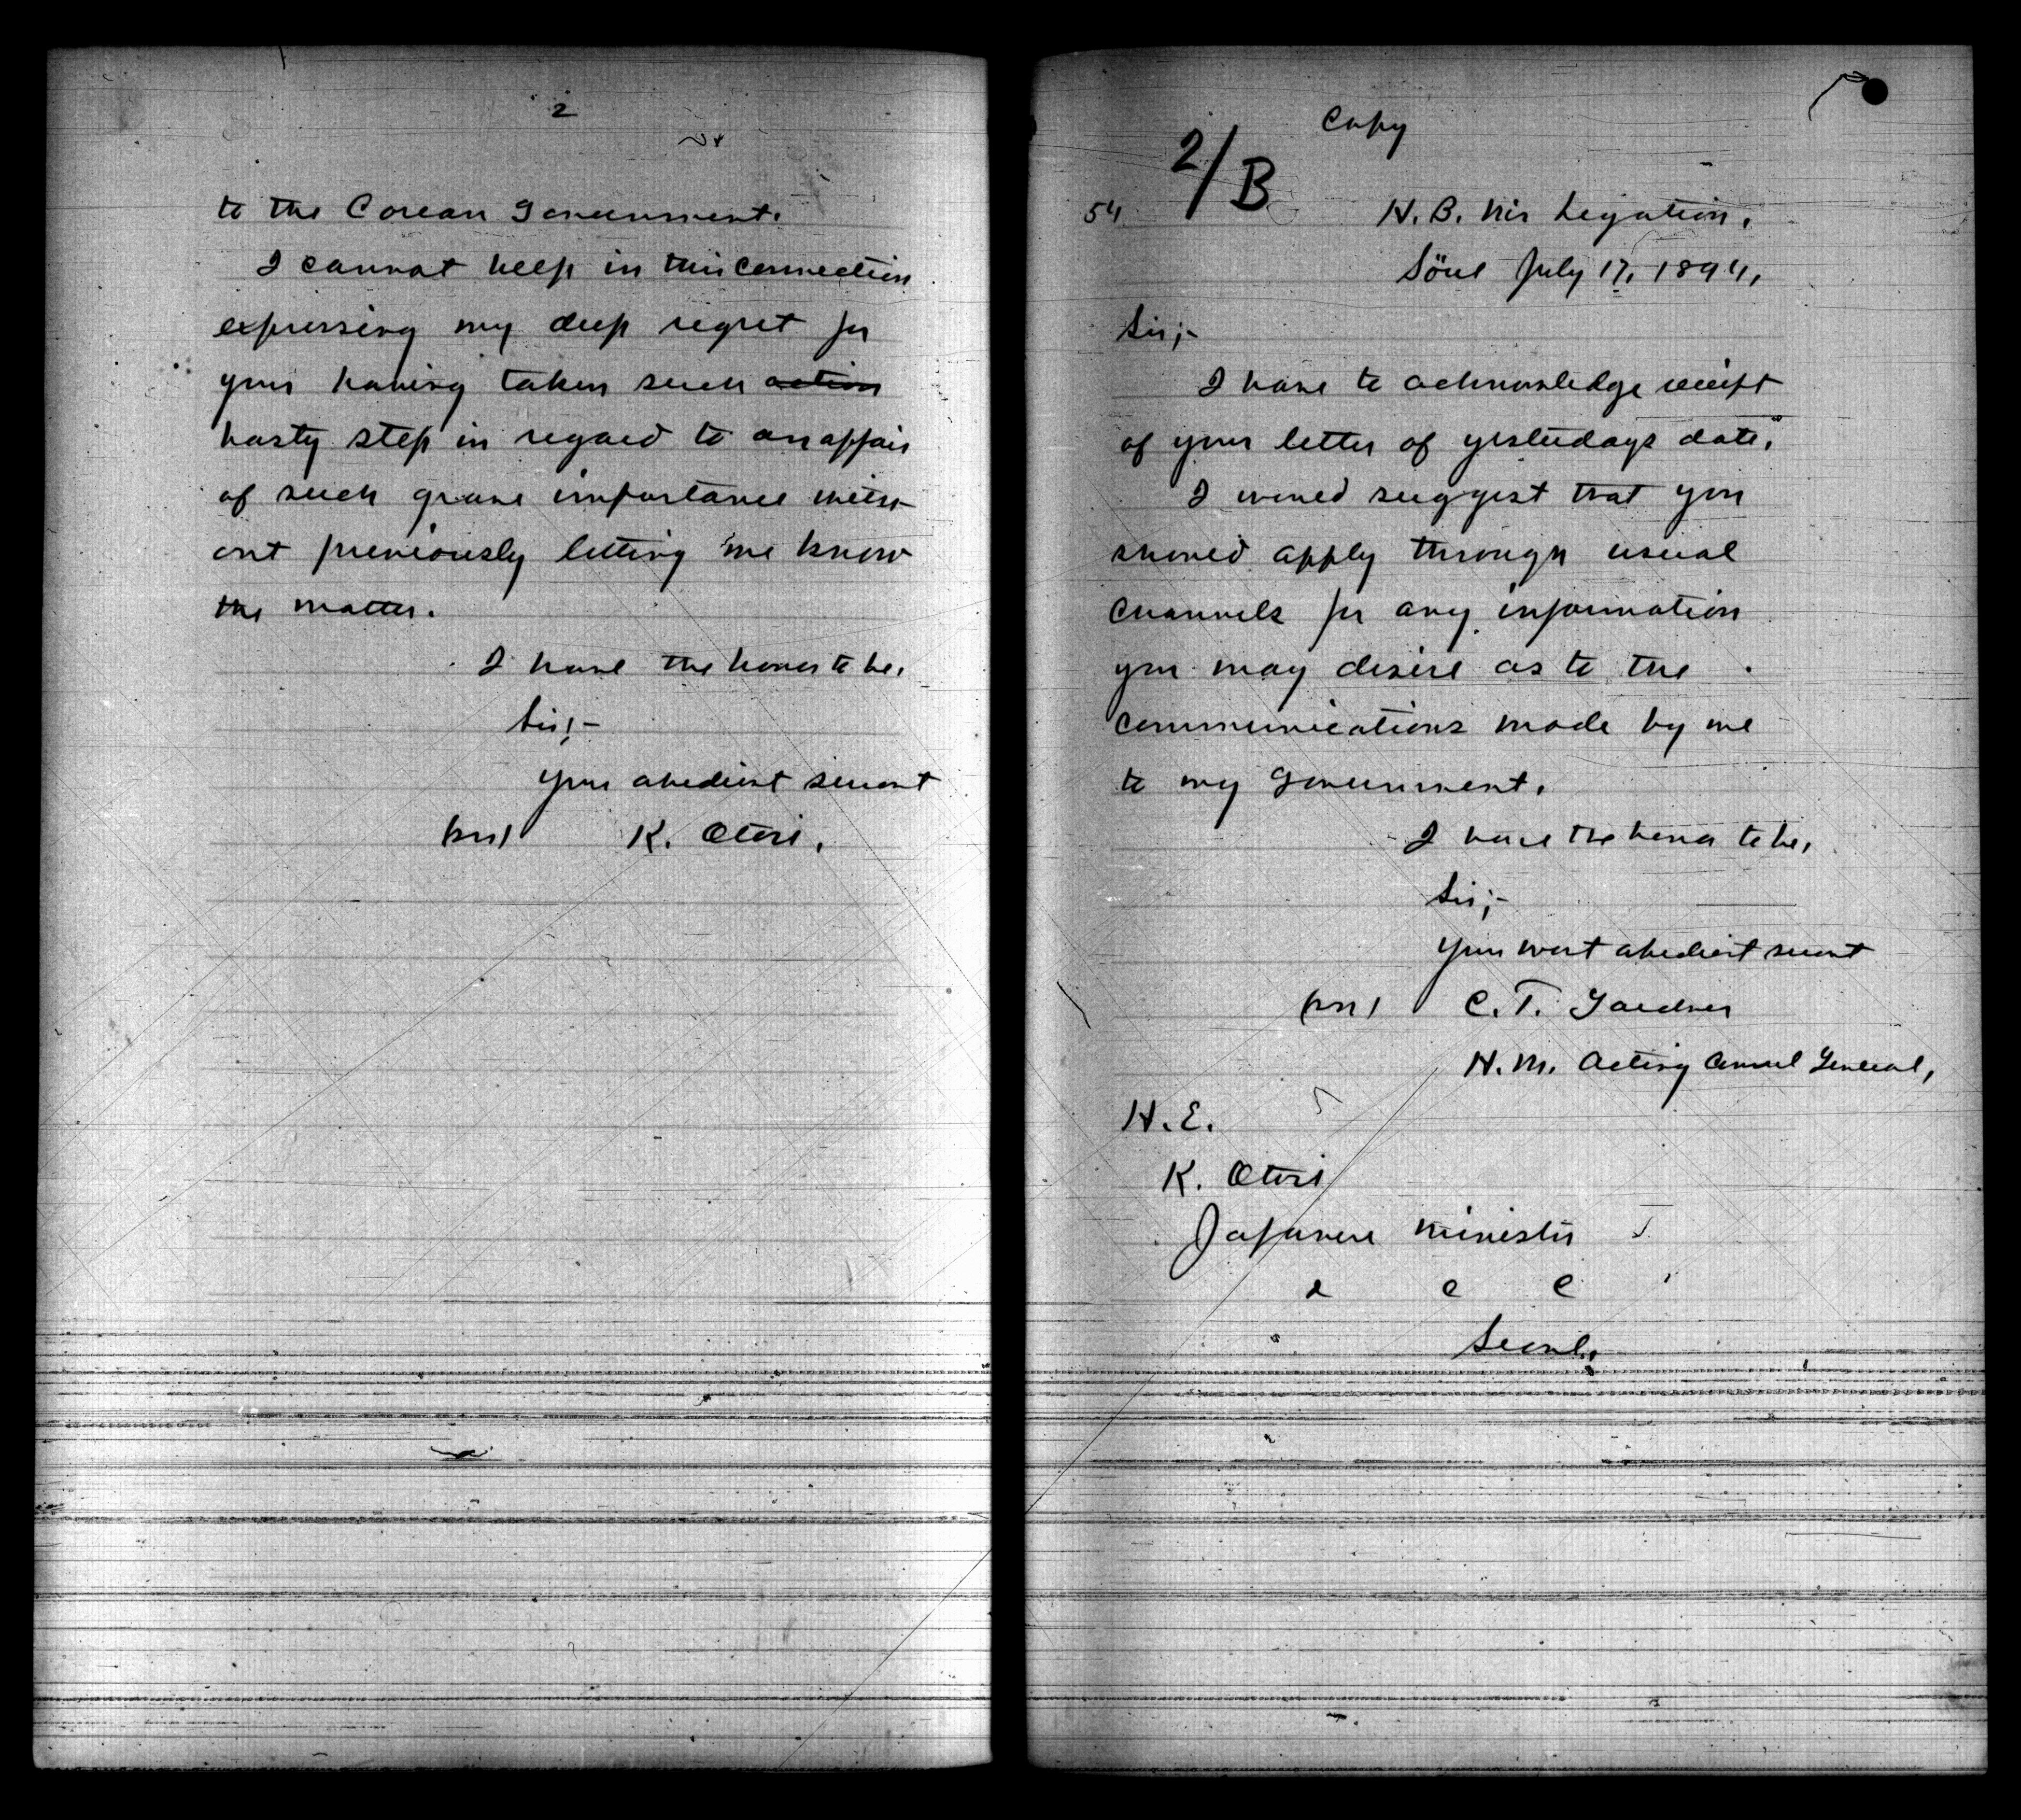 2
to the Corean Government.
I cannot help in this connection
expressing my deep regret for
your having taken such action
hasty step in regard to an affair
of such grave importance with-
out previously letting me know
the matter.
I have the honor to be,
Sir;-
your obedient servant
K. Otori.
Copy
2/B
54
H. B. M's Legation,
Söul July 17, 1894,
Sir;-
I have to acknowledge receipt
of your letter of yesterdays date,
I would suggest that you
should apply through usual
channels for any information
you may desire as to the
communications made by me
to my Government.
I have the honor to be,
Sir;-
your most obedient servant
C. T. Gardner
H. M. Acting Consul General,
H. E.
K. Otori
Japanese Minister
Seoul.